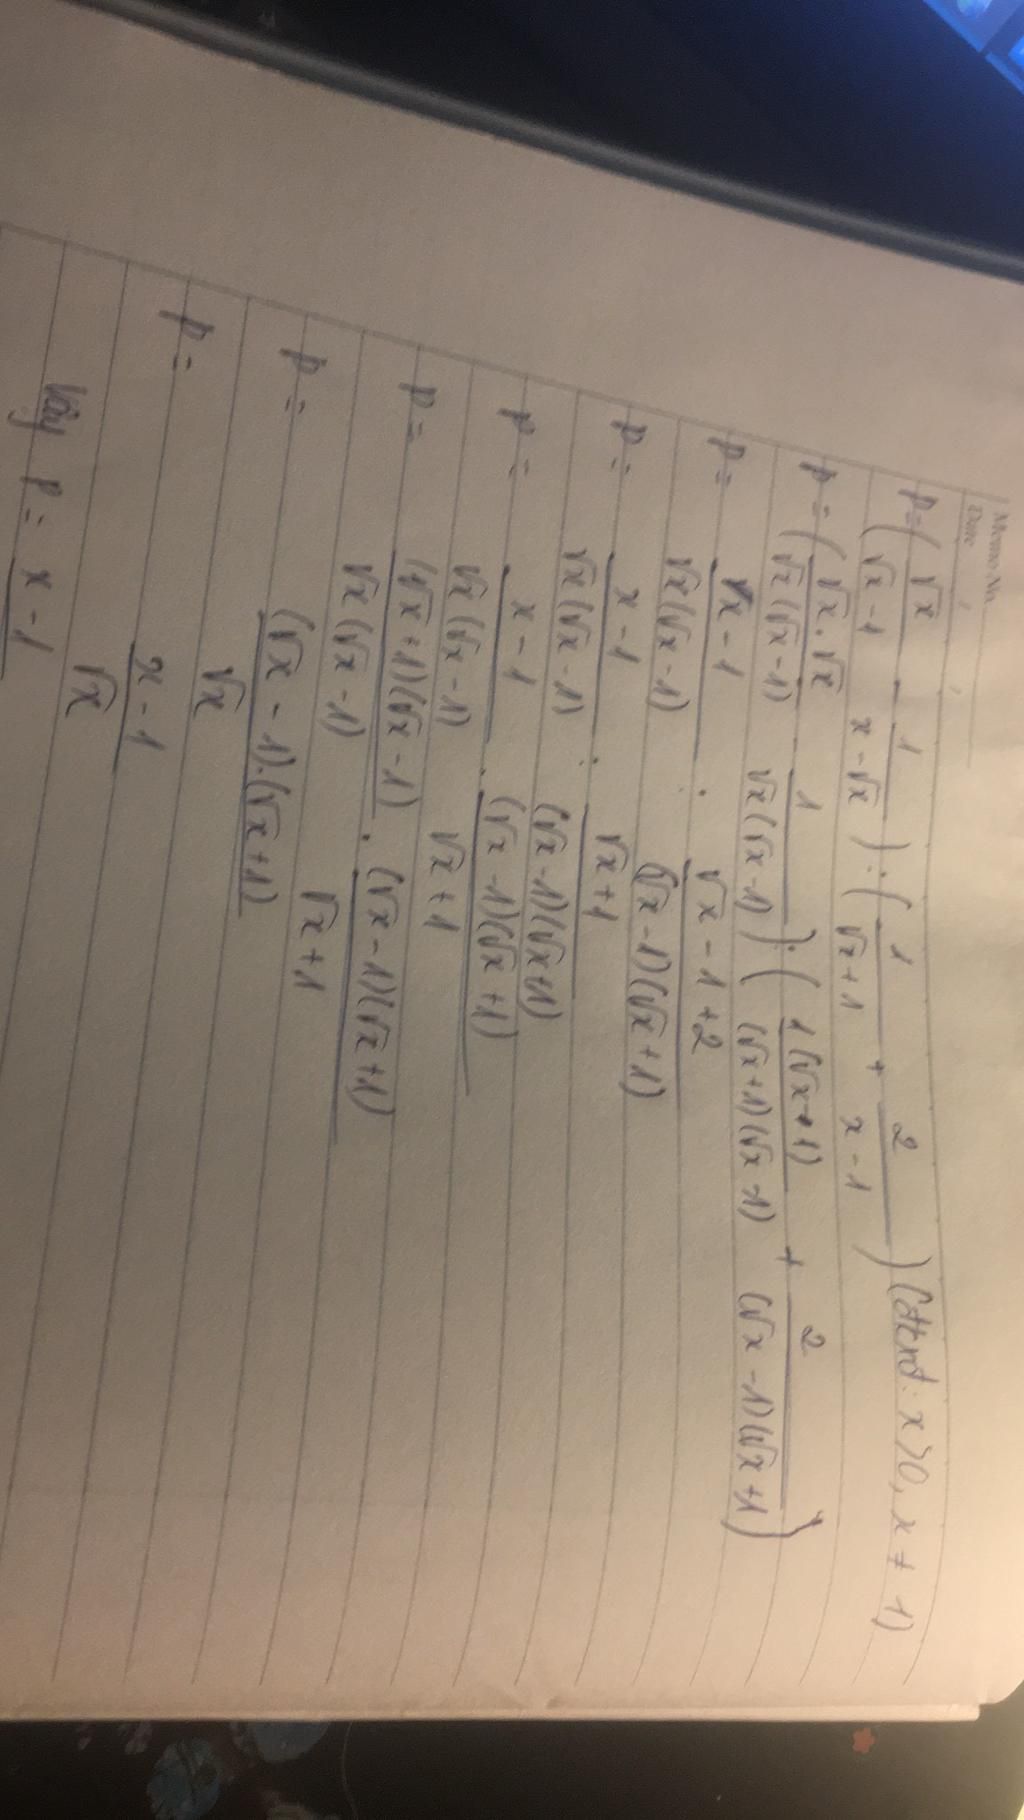 Memo No.
Date
P = ( √x / (√x - 1) - 1 / (x - √x) ) : ( 1 / (√x + 1) + 2 / (x - 1) ) (đkxđ: x > 0, x ≠ 1)
P = ( √x . √x / √x(√x - 1) - 1 / √x(√x - 1) ) : ( 1(√x - 1) / (√x + 1)(√x - 1) + 2 / (√x - 1)(√x + 1) )
P = x - 1 / √x(√x - 1) : √x - 1 + 2 / (√x - 1)(√x + 1)
P = x - 1 / √x(√x - 1) : √x + 1 / (√x - 1)(√x + 1)
P = x - 1 / √x(√x - 1) . (√x - 1)(√x + 1) / √x + 1
P = (√x + 1)(√x - 1) / √x(√x - 1) . (√x - 1)(√x + 1) / √x + 1
P = (√x - 1).(√x + 1) / √x
P = x - 1 / √x
Vậy P = x - 1 / √x